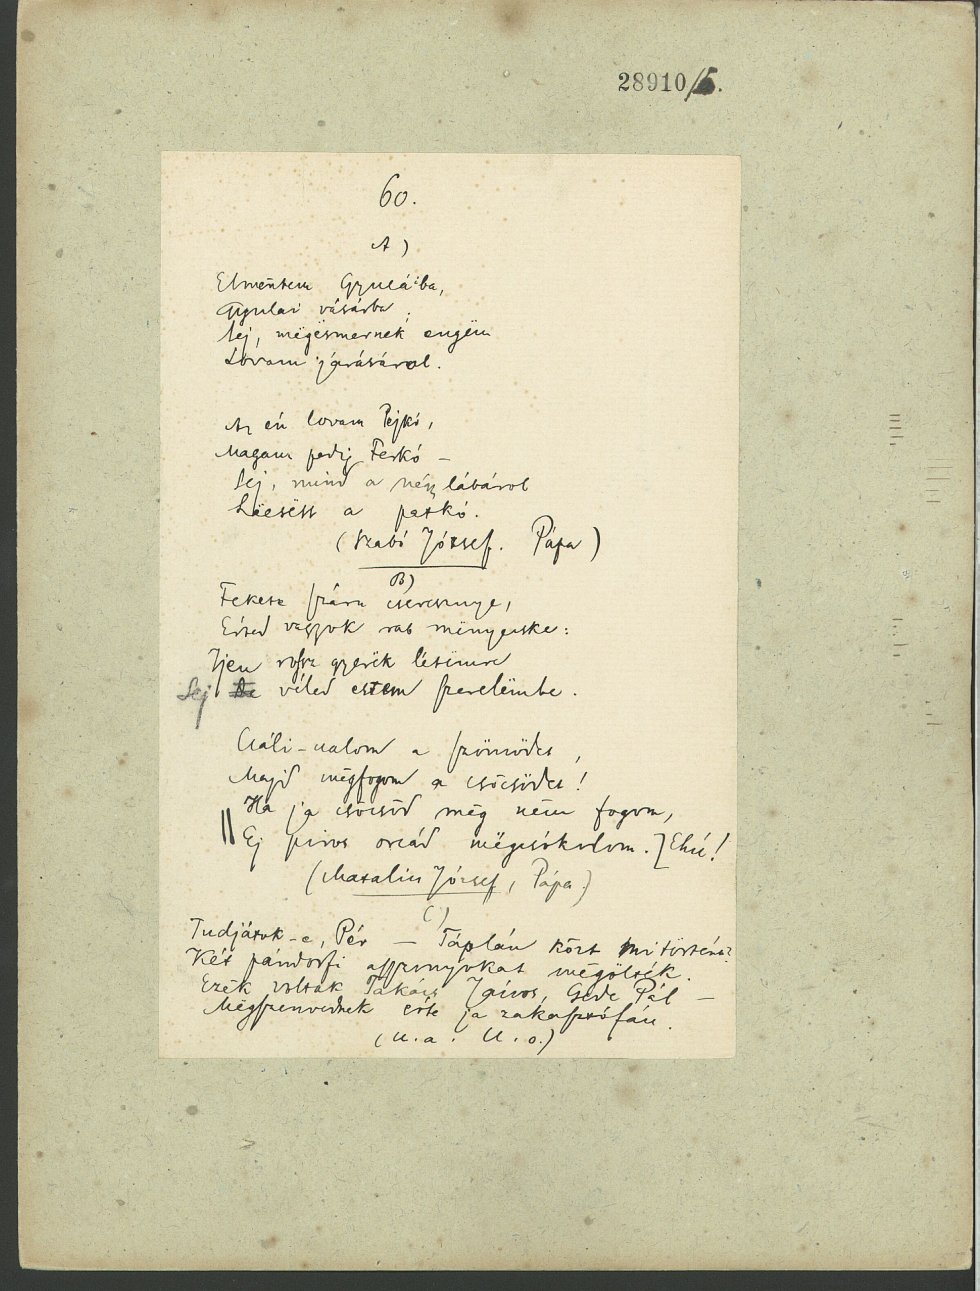 28910/5.
60.
A)
Elmëntem Gyulá'ba,
Gyulai vásárba,
Sej, mëgësmernek engëm
Lovam járásárol.
Az én lovam Pejkó,
Magam pedig Ferkó –
Sej, mind a négy lábárol
Lëesëss a patkó.
(Szabó József. Pápa)
B)
Fekete szárú cseresznye,
Érted vagyok rab mënyecske:
Ijen rossz gyerëk létëmre
Sej véled estem szerelëmbe.
Csáli-nalom a szömödet,
Majd mëgfogom a csöcsödet!
Ha ja csöcsöd mëg nëm fogom,
Ej piros orcád mëgcsókolom.] Ehú!
(Matalin József, Pápa)
C)
Tudjátok-e, Pér – Táplán közt mi történt?
Két pándorfi asszonyokat mëgölték.
Ezëk voltak Takács János, Gede Pál –
Mëgszenvednek érte ja zakasztófán.
(U.a. U.o.)